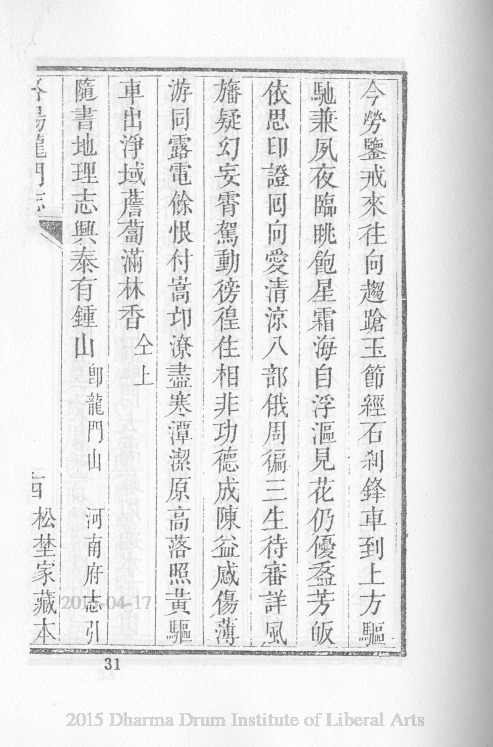 今勞鑒戒來往向趨蹌玉節經石刹鋒車到上方驅
馳兼夙夜臨眺飽星霜海自浮漚見花仍優盋芳皈
依思印證囘向愛清涼八部俄周徧三生待審詳風
旛疑幻妄霄駕動徬徨住相非功德成陳益感傷薄
游同露電餘恨付嵩邙潦盡寒潭潔原高落照黃驅
車出淨域薝蔔滿林香 仝上
隨書地理志興泰有鍾山 卽龍門山 河南府志引
龍門志 松埜家藏本
2017-04-17
31
2015 Dharma Drum Institute of Liberal Arts